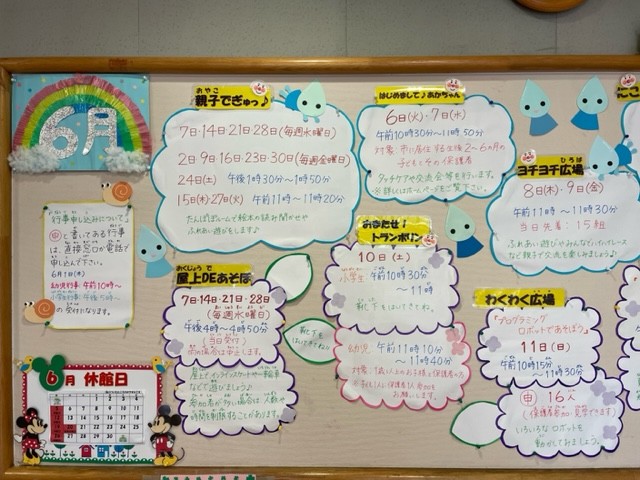 6月
行事申し込みについて
申と書いてある行事
は、直接窓口か電話で
申し込んで下さい。
6月1日(木)
幼児行事:午前10時〜
小学生行事:午後3時〜
の受付になります。
6月 休館日
おやこ
親子でぎゅっ♪
7日・14日・21日・28日(毎週水曜日)
2日・9日・16日・23日・30日(毎週金曜日)
24日(土) 午後1時30分〜1時50分
15日(木)・27日(火) 午前11時〜11時20分
たんぽぽルームで絵本の読み聞かせや
ふれあい遊びをします♪
はじめまして♪あかちゃん
6日(火)・7日(水)
午前10時30分〜11時50分
対象:市に居住する生後2〜6か月の
子どもとその保護者
タッチケアや交流会等を行います。
※詳しくはホームページをご覧下さい。
ひろば
ヨチヨチ広場
8日(木)・9日(金)
午前11時〜11時30分
当日先着:15組
ふれあい遊びやみんなでハイハイレース
など親子で交流を楽しみましょう♪
おくじょうで
屋上DEあそぼ
7日・14日・21日・28日
(毎週水曜日)
午後4時〜4時50分
(当日受付)
雨の場合は中止します。
屋上でインラインスケートや一輪車
などで遊びましょう♪
参加者が多い場合は、人数や
時間を制限することがあります。
靴下を
はいてきてね♡
おまたせ!
トランポリン
10日(土)
小学生 午前10時30分
〜11時
靴下をはいてきてね。
幼児 午前11時10分
〜11時40分
お願いします。
わくわく広場
「プログラミング
ロボットであそぼう」
11日(日)
午前10時15分
〜11時30分
申 16人
(保護者参加・見学できます)
いろいろなロボットを
動かしてみましょう。
にこ